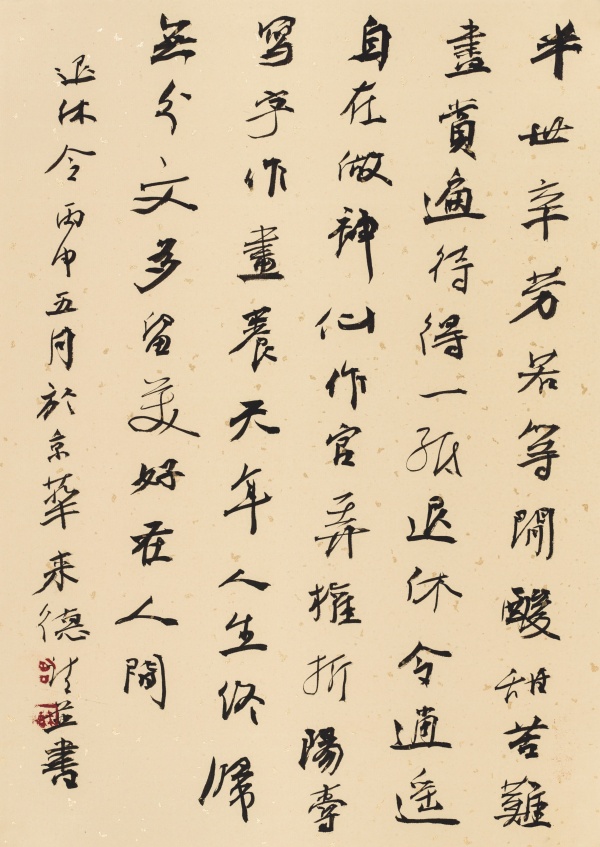 半世辛劳若等閒酸甜苦難
盡賞遍待得一紙退休令逍遥
自在做神仙作官弄權折陽壽
写字作畫養天年人生终歸
無分文多留美好在人間
退休令丙申五月於京華来德并書